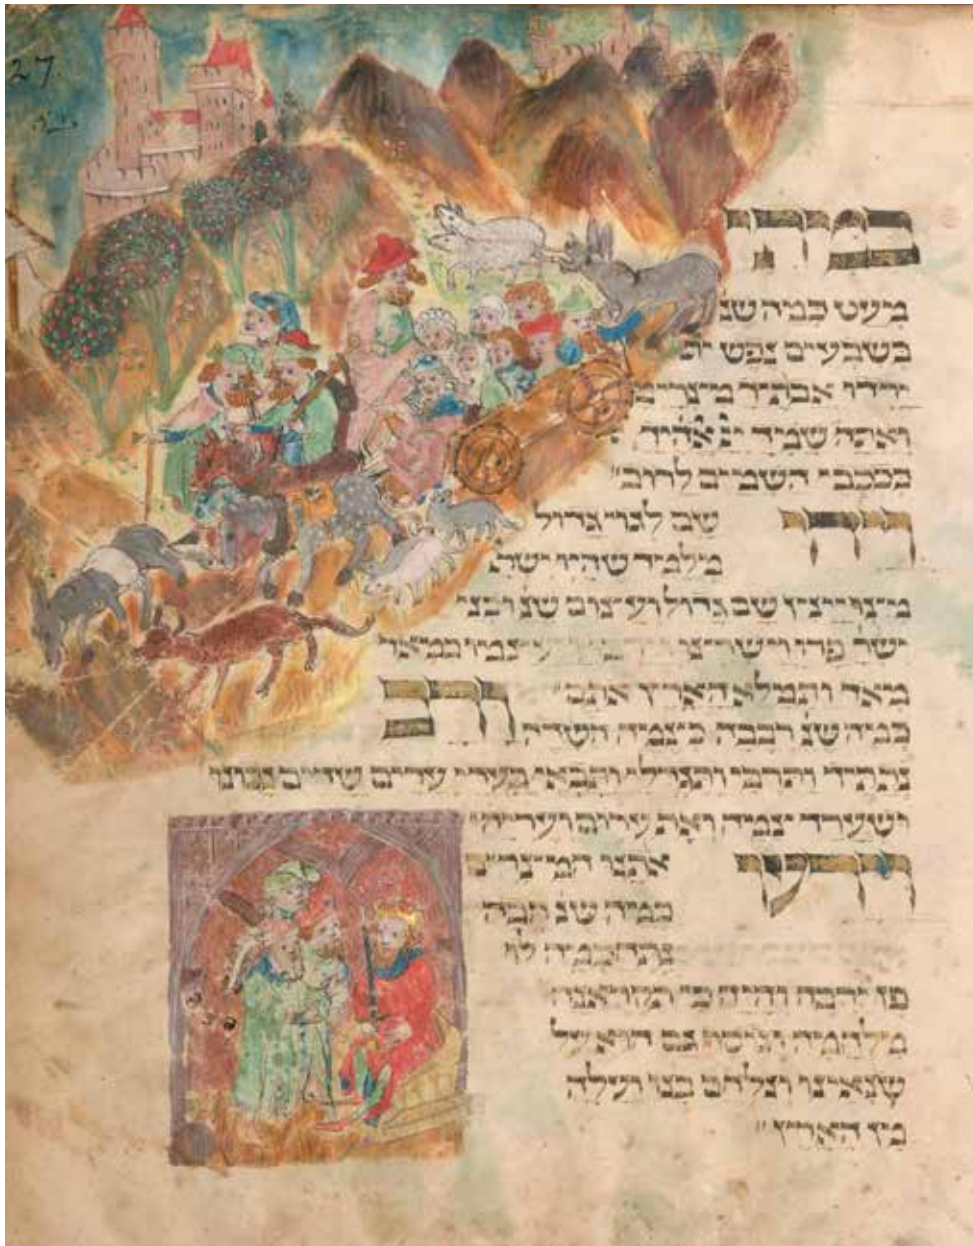 27
במתי
מעט כמה שנ
בשבעים נפש יר
ירדו אבתיך מצרים
ועתה שמיך יי אלהיך
כככבי השמים לרוב
ויהי שם לגוי גדול
מלמד שהיו ישר
מצויינין שם גדול ועצום שנ ובני
ישר פרו וישרצו ויעצמו במאד
מאד ותמלא הארץ אתם
ורב כמה שנ רבבה כצמח השדה
נתתיך ותרבי ותגדלי ותבאי בעדי עדים שדים נכונו
ושערך צמח ואת ערום ועריה
וירעו אתנו המצרים
כמה שנ הבה
נתחכמה לו
פן ירבה והיה כי תקראנה
מלחמה ונוסף גם הוא על
שנאינו ונלחם בנו ועלה
מן הארץ